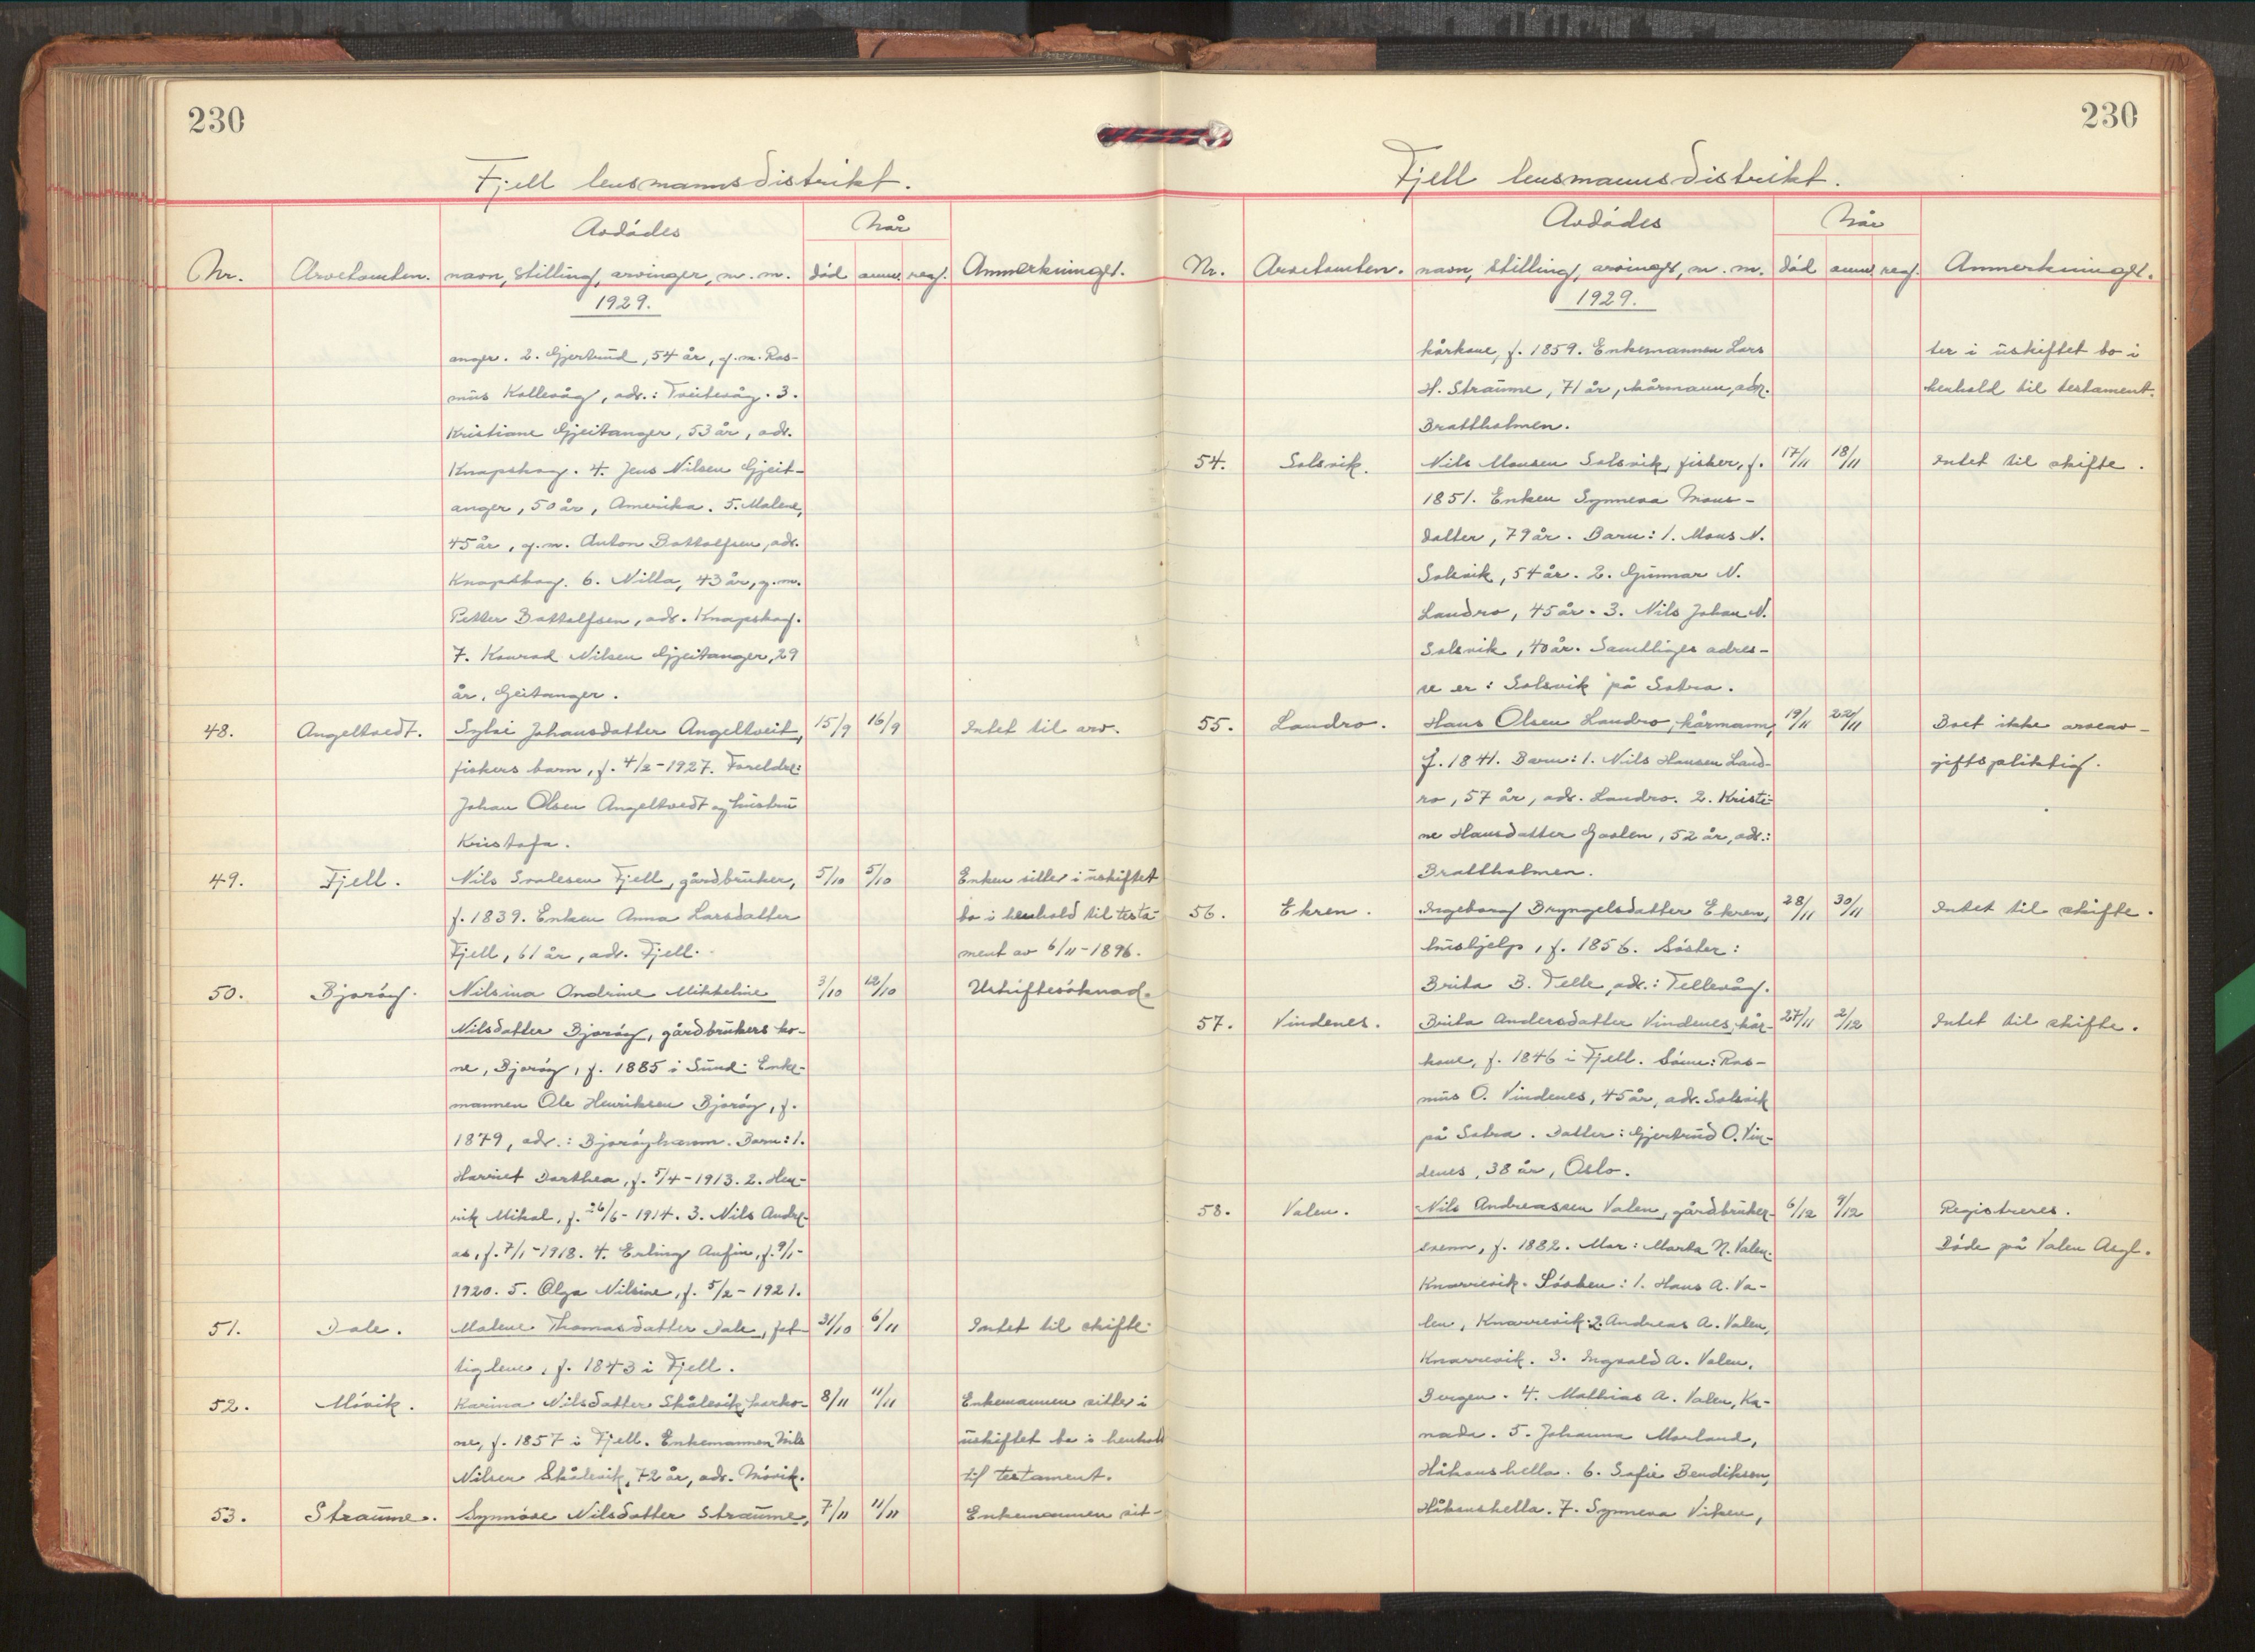 230
Fjell lensmannsdistrikt.
Avdødes
Når
Nr. Arvetomten. navn, stilling, arvinger, m. m. død anm. reg. Anmerkninger.
1929.
anger. 2. Gjertrud, 54 år, g. m. Ras-
mus Kollevåg, adr.: Tveitevåg. 3.
Kristiane Gjeitanger, 53 år, adr.
Knapskog. 4. Jens Nilsen Gjeit-
anger, 50 år, Amerika. 5. Malene,
45 år, g. m. Anton Bottolfsen, adr.
Knapskog. 6. Nilla, 43 år, g. m.
Petter Bottolfsen, adr. Knapskog.
7. Konrad Nilsen Gjeitanger, 29
år, Geitanger.
48. Angeltvedt. Sylvi Johansdatter Angeltveit, 15/9 16/9 Intet til arv.
fiskers barn, f. 4/2-1927. Foreldre:
Johan Olsen Angeltvedt og hustru
Kristofa.
49. Fjell. Nils Svalesen Fjell, gårdbruker, 5/10 5/10 Enken sitter i uskiftet
f. 1839. Enken Anna Larsdatter bo i henhold til testa-
Fjell, 61 år, adr. Fjell. ment av 6/11-1896.
50. Bjorøy. Nilsina Andrine Mikkeline 3/10 12/10 Uskiftesøknad.
Nilsdatter Bjorøy, gårdbrukers ko-
ne, Bjorøy, f. 1885 i Sund. Enke-
mannen Ole Henriksen Bjorøy, f.
1879, adr.: Bjorøyhamn. Barn: 1.
Harriet Dorthea, f. 5/4-1913. 2. Hen-
rik Mikal, f. 26/6-1914. 3. Nils Andre-
as, f. 7/1-1918. 4. Erling Anfin, f. 9/1-
1920. 5. Olga Nilsine, f. 5/2-1921.
51. Dale. Malene Thomasdatter Dale, fat- 31/10 6/11 Intet til skifte.
tiglem, f. 1843 i Fjell.
52. Møvik. Karina Nilsdatter Skålevik, kårko- 8/11 11/11 Enkemannen sitter i
ne, f. 1857 i Fjell. Enkemannen Nils uskiftet bo i henhold
Nilsen Skålevik, 72 år, adr. Møvik. til testament.
53. Straume. Synnøve Nilsdatter Straume, 7/11 11/11 Enkemannen sit-
230
Fjell lensmannsdistrikt.
Avdødes
Når
Nr. Arvetomten. navn, stilling, arvinger, m. m. død anm. reg. Anmerkninger.
1929.
kårkone, f. 1859. Enkemannen Lars ter i uskiftet bo i
H. Straume, 71 år, kårmann, adr. henhold til testament.
Brattholmen.
54. Solsvik. Nils Monsen Solsvik, fisker, f. 17/11 18/11 Intet til skifte.
1851. Enken Synneva Mons-
datter, 79 år. Barn: 1. Mons N.
Solsvik, 54 år. 2. Gunnar N.
Landro, 45 år. 3. Nils Johan N.
Solsvik, 40 år. Samtliges adres-
se er: Solsvik på Sotra.
55. Landro. Hans Olsen Landro, kårmann, 19/11 22/11 Boet ikke arveav-
f. 1841. Barn: 1. Nils Hansen Land- giftspliktig.
ro, 57 år, adr. Landro. 2. Kristi-
ne Hansdatter Geolen, 52 år, adr.:
Brattholmen.
56. Ekren. Ingeborg Bryngelsdatter Ekren, 28/11 30/11 Intet til skifte.
hushjelp, f. 1856. Søster:
Brita B. Telle, adr.: Tellevåg.
57. Vindenes. Brita Andersdatter Vindenes, kår- 27/11 2/12 Intet til skifte.
kone, f. 1846 i Fjell. Sønn: Ras-
mus O. Vindenes, 45 år, adr. Solsvik
på Sotra. Datter: Gjertrud O. Vin-
denes, 38 år, Oslo.
58. Valen. Nils Andreassen Valen, gårdbruker- 6/12 9/12 Registreres.
svenn, f. 1882. Mor: Marta N. Valen. Døde på Valen Asyl.
Knarrevik. Søsken: 1. Hans A. Va-
len, Knarrevik. 2. Andreas A. Valen,
Knarrevik. 3. Ingvald A. Valen,
Bergen. 4. Mathias A. Valen, Ka-
nada. 5. Johanna Morland,
Håkonshella. 6. Sofie Bendiksen,
Håkonshella. 7. Synneva Viken,